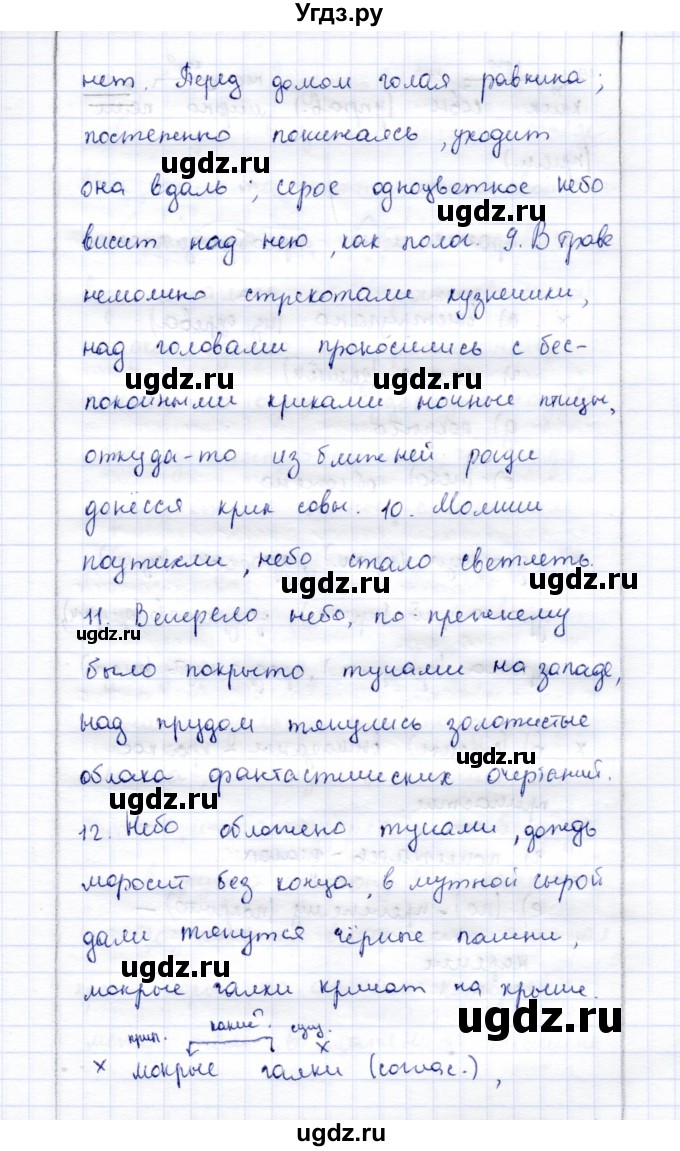 Угдз.ру
нет. Перед домом голая равнина;
постепенно понижаясь, уходит
ugdz.ru
ugdz.ru
она вдаль; серое одноцветное небо
ugdz.ru
висит над нею, как полог. 9. В траве
немолчно стрекотали кузнечики,
над головами проносились с бес-
ugdz.ru
ugdz.ru
покойными криками ночные птицы,
откуда-то из ближней рощи
донёсся крик совы. 10. Молнии
ugdz.ru
поутихли, небо стало светлеть.
ugdz.ru
ugdz.ru
11. Вечерело небо, по-прежнему
ugdz.ru
было покрыто тучами на западе,
над прудом тянулись золотистые
ugdz.ru
облака фантастических очертаний.
ugdz.ru
12. Небо обложено тучами, дождь
ugdz.ru
моросит без конца, в мутной сырой
дали тянутся чёрные пашни,
ugdz.ru
мокрые галки кричат на крыше.
ugdz.ru
прил. какие? сущ.
х
х мокрые галки (соглас.),
ugdz.ru